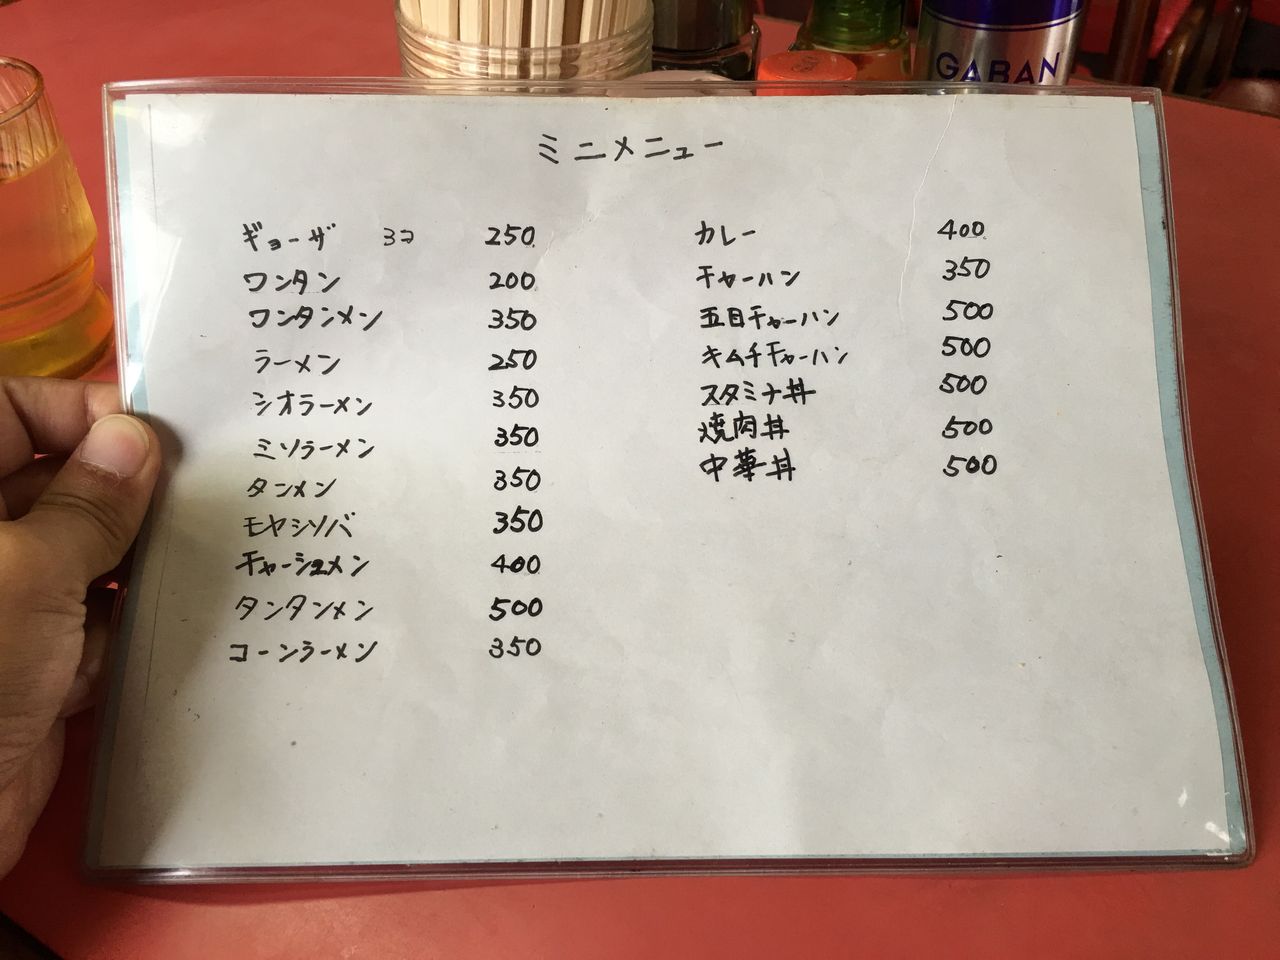 GABAN
ミニメニュー
ギョーザ 3コ 250
ワンタン 200
ワンタンメン 350
ラーメン 250
シオラーメン 350
ミソラーメン 350
タンメン 350
モヤシソバ 350
チャーシュメン 400
タンタンメン 500
コーンラーメン 350
カレー 400
チャーハン 350
五目チャーハン 500
キムチチャーハン 500
スタミナ丼 500
焼肉丼 500
中華丼 500